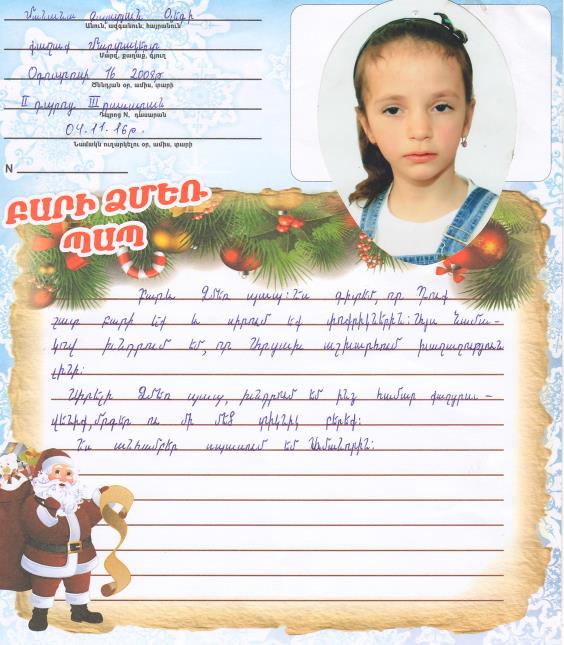 Մանանա Օլեգի
Անուն, ազգանուն, հայրանուն
քաղաք Մարտակերտ
Մարզ, քաղաք, գյուղ
Օգոստոսի 16 2008թ
Ծննդյան օր, ամիս, տարի
II դպրոց III դասարան
Դպրոց N, դասարան
04.11.16թ.
Նամակն ուղարկելու օր, ամիս, տարի
N
ԲԱՐԻ ՁՄԵՌ
ՊԱՊ
Բարև Ձմեռ պապ: Ես գիտեմ, որ Դուք
շատ բարի եք և սիրում եք փոքրիկներին: Այս նամա-
կով խնդրում եմ, որ աշխարհում խաղաղություն
լինի:
Սիրելի Ձմեռ պապ, խնդրում եմ ինձ համար քաղցրա-
վենիք, մրգեր ու մի մեծ տիկնիկ բերեք:
Ես անհամբեր սպասում եմ Ամանորին: